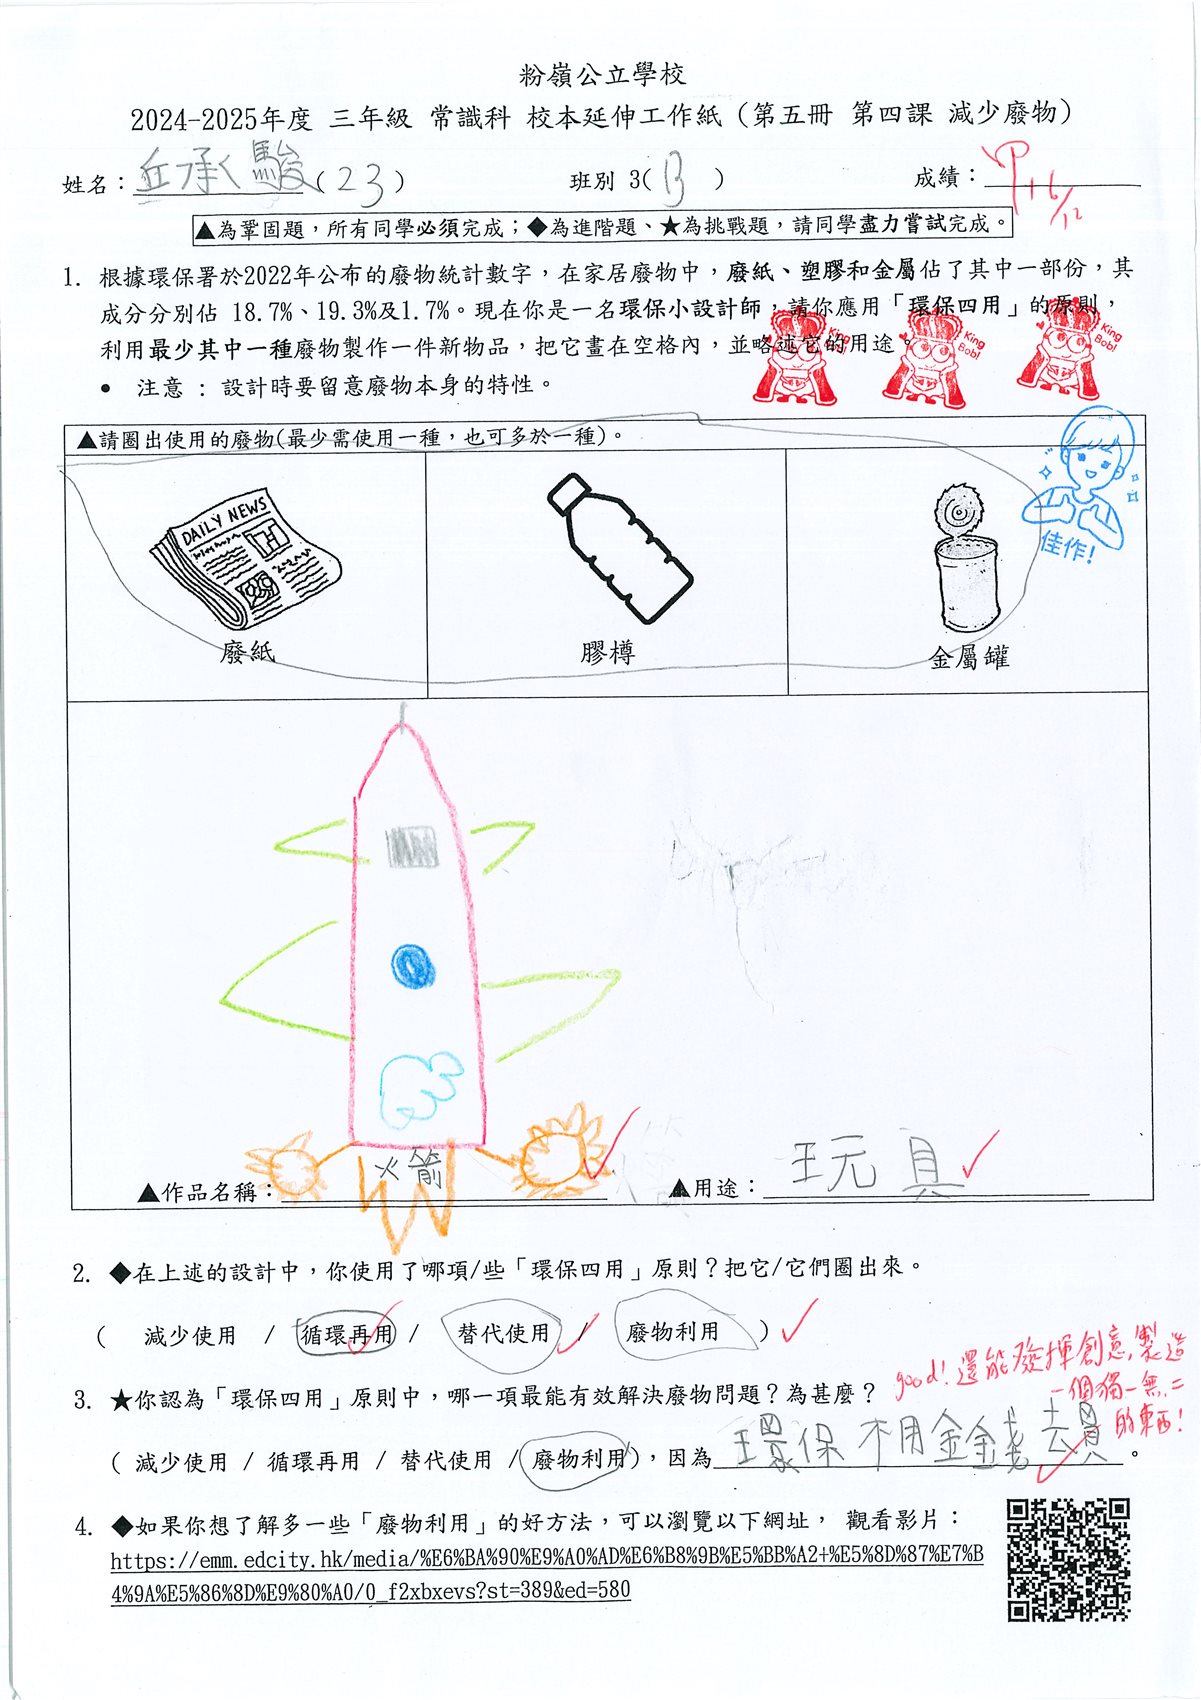 粉嶺公立學校
2024-2025年度 三年級 常識科 校本延伸工作紙 (第五冊 第四課 減少廢物)
姓名：丘承駿(23) 班別 3(B) 成績：甲+ 6/12
▲為鞏固題，所有同學必須完成；◆為進階題、★為挑戰題，請同學盡力嘗試完成。
1. 根據環保署於2022年公布的廢物統計數字，在家居廢物中，廢紙、塑膠和金屬佔了其中一部份，其
成分分別佔 18.7%、19.3%及1.7%。現在你是一名環保小設計師，請你應用「環保四用」的原則，
利用最少其中一種廢物製作一件新物品，把它畫在空格內，並略述它的用途。
King Bob!
King Bob!
King Bob!
● 注意 : 設計時要留意廢物本身的特性。
▲請圈出使用的廢物(最少需使用一種，也可多於一種)。
DAILY NEWS
佳作!
廢紙 膠樽 金屬罐
▲作品名稱：火箭 ▲用途：玩具
2. ◆在上述的設計中，你使用了哪項/些「環保四用」原則？把它/它們圈出來。
( 減少使用 / 循環再用 / 替代使用 / 廢物利用 )
good! 還能發揮創意,製造
一個獨一無二
的東西!
3. ★你認為「環保四用」原則中，哪一項最能有效解決廢物問題？為甚麼？
( 減少使用 / 循環再用 / 替代使用 / 廢物利用)，因為環保不用金錢去買。
4. ◆如果你想了解多一些「廢物利用」的好方法，可以瀏覽以下網址， 觀看影片：
https://emm.edcity.hk/media/%E6%BA%90%E9%A0%AD%E6%B8%9B%E5%BB%A2+%E5%8D%87%E7%B
4%9A%E5%86%8D%E9%80%A0/0_f2xbxevs?st=389&ed=580